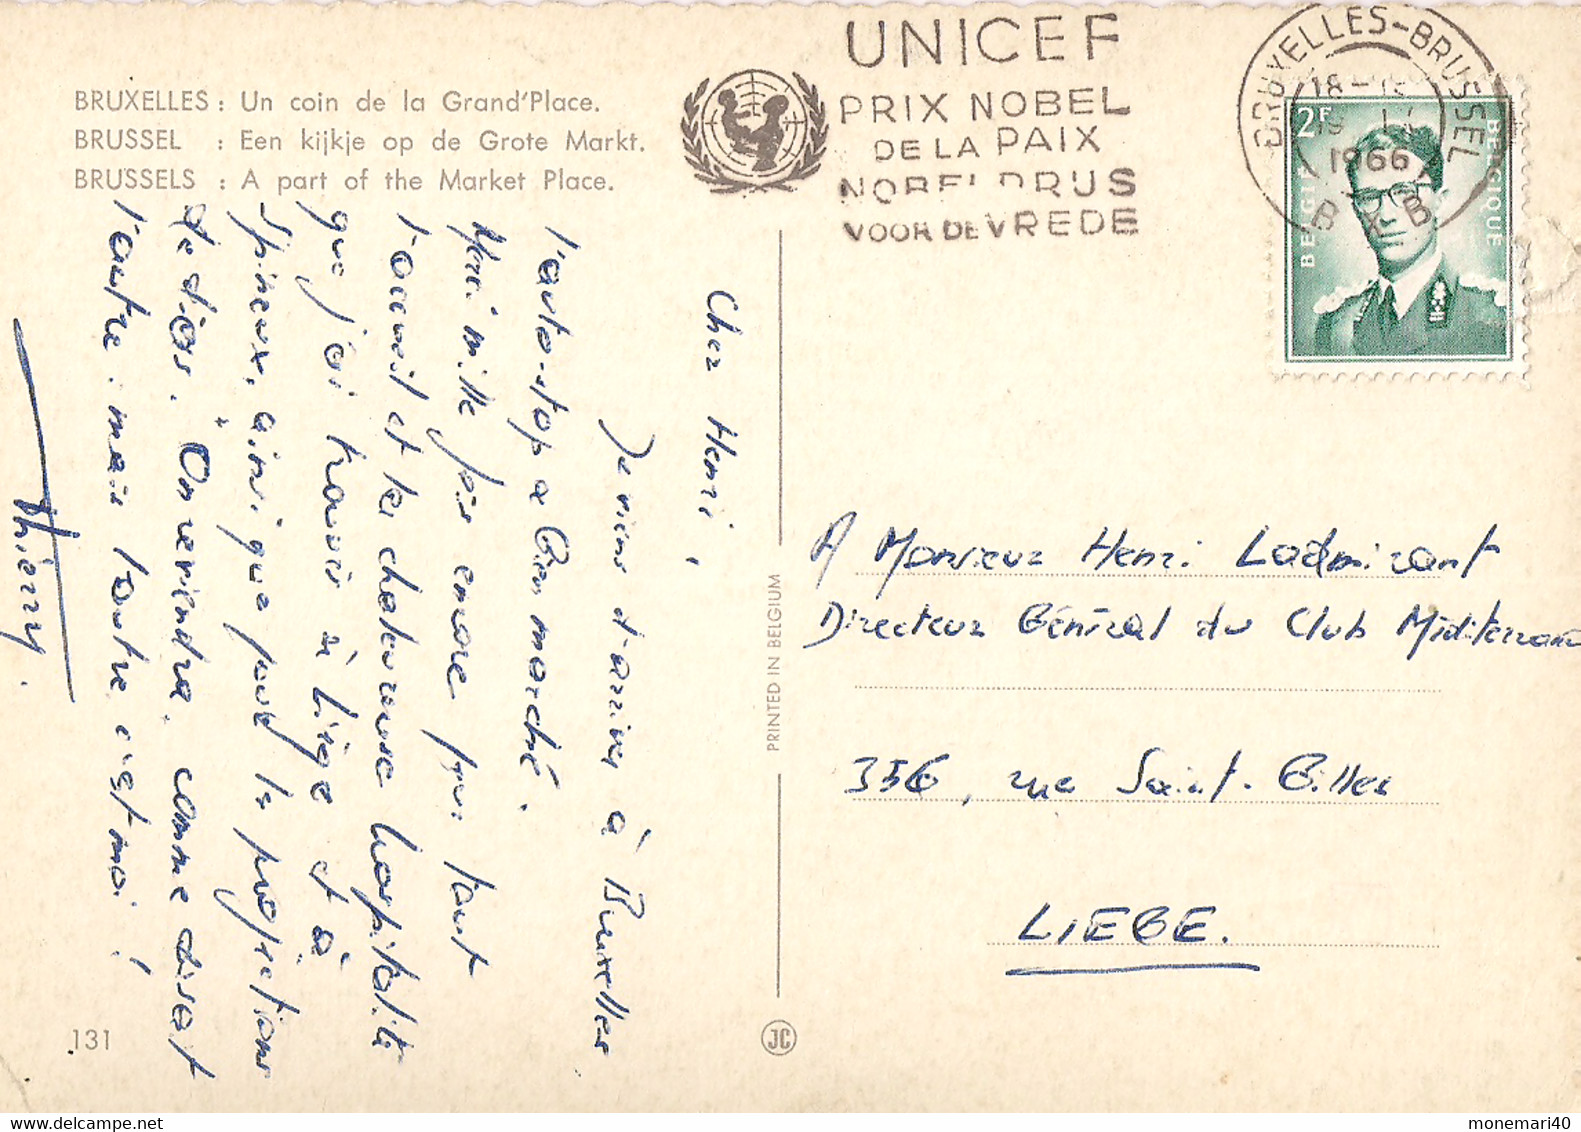 BRUXELLES : Un coin de la Grand'Place.
BRUSSEL : Een kijkje op de Grote Markt.
BRUSSELS : A part of the Market Place.
UNICEF
PRIX NOBEL
DE LA PAIX
NOBELPRIJS
VOOR DE VREDE
BRUXELLES-BRUSSEL
18-
19
1966
B X B
2F
BELGIE
BELGIQUE
Cher Henri,
Je viens d'arriver à Bruxelles
l'auto-stop a bien marché.
Merci mille fois encore pour tout
l'accueil et la chaleureuse hospitalité
que j'ai trouvés à Liège et à
Spineux, ainsi que pour les projections
de dias. On reviendra, comme disait
l'autre, mais l'autre c'est moi !
Thierry.
PRINTED IN BELGIUM
JC
131
A Monsieur Henri Ladmirant
Directeur Général du Club Méditerranée
356, rue Saint-Gilles
LIEGE.
monemari40